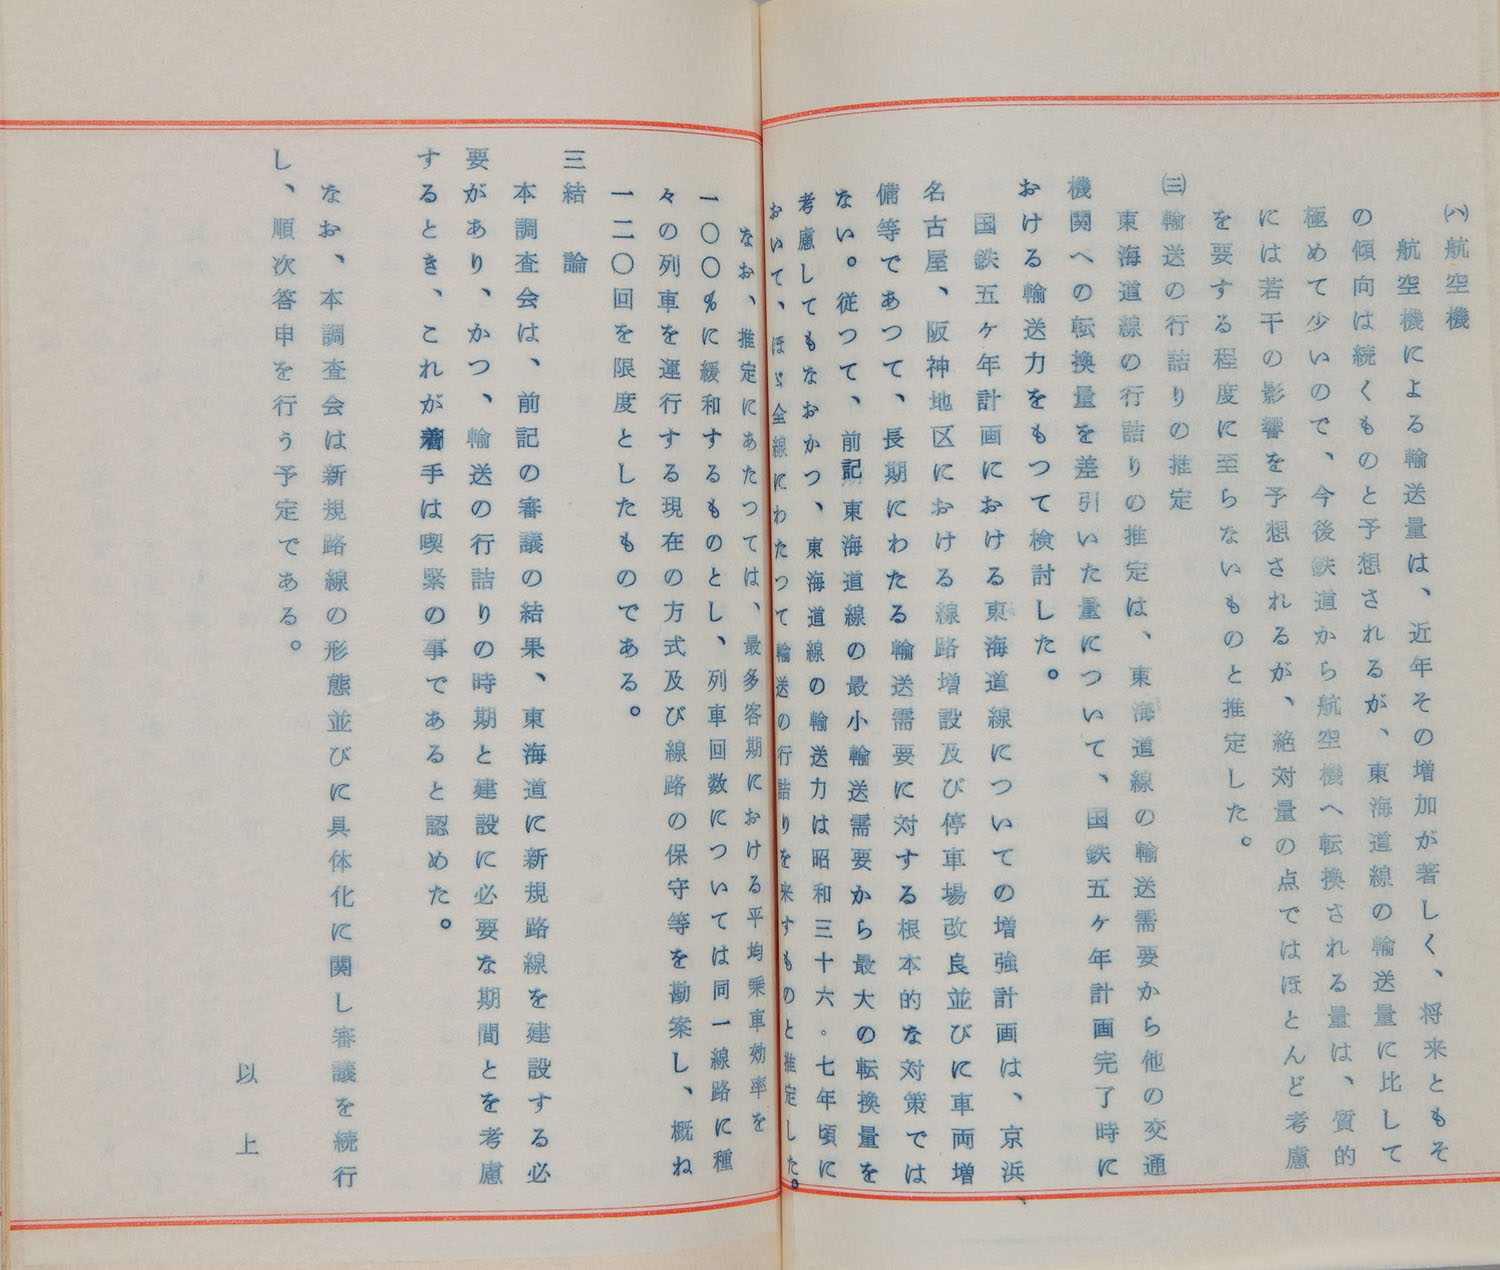 ㈧航空機
航空機による輸送量は、近年その増加が著しく、将来ともそ
の傾向は続くものと予想されるが、東海道線の輸送量に比して
極めて少いので、今後鉄道から航空機へ転換される量は、質的
には若干の影響を予想されるが、絶対量の点ではほとんど考慮
を要する程度に至らないものと推定した。
㈢輸送の行詰りの推定
東海道線の行詰りの推定は、東海道線の輸送需要から他の交通
機関への転換量を差引いた量について、国鉄五ヶ年計画完了時に
おける輸送力をもつて検討した。
国鉄五ヶ年計画における東海道線についての増強計画は、京浜、
名古屋、阪神地区における線路増設及び停車場改良並びに車両増
備等であつて、長期にわたる輸送需要に対する根本的な対策では
ない。従つて、前記東海道線の最小輸送需要から最大の転換量を
考慮してもなおかつ、東海道線の輸送力は昭和三十六。七年頃に
おいて、ほゞ全線にわたつて輸送の行詰りを来すものと推定した。
なお、推定にあたつては、最多客期における平均乗車効率を
一〇〇%に緩和するものとし、列車回数については同一線路に種
々の列車を運行する現在の方式及び線路の保守等を勘案し、概ね
一二〇回を限度としたものである。
三結論
本調査会は、前記の審議の結果、東海道に新規路線を建設する必
要があり、かつ、輸送の行詰りの時期と建設に必要な期間とを考慮
するとき、これが着手は喫緊の事であると認めた。
なお、本調査会は新規路線の形態並びに具体化に関し審議を続行
し、順次答申を行う予定である。
以上